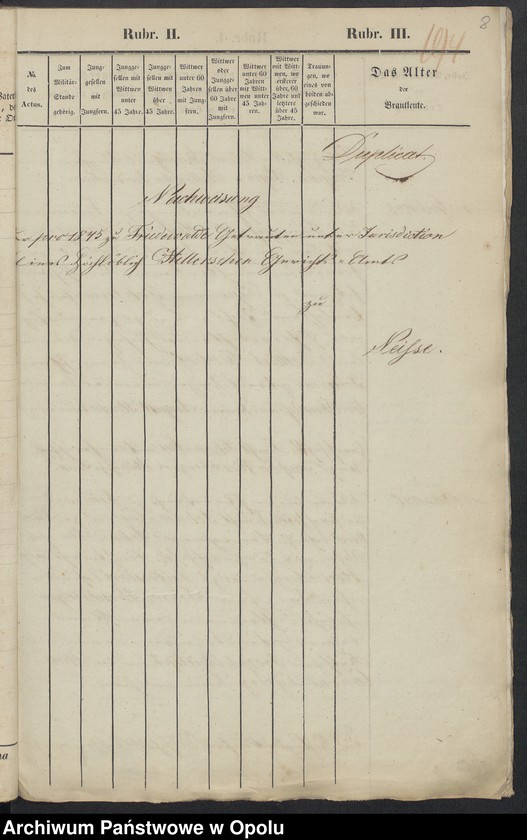 8
Rubr. II. Rubr. III.
694
№. des Actus.
Zum Militär-Stande gehörig.
Jung-gesellen mit Jungfern.
Jungge-sellen mit Wittwen unter 45 Jahre.
Jungge-sellen mit Wittwen über 45 Jahre.
Wittwer unter 60 Jahren mit Jung-fern.
Wittwer oder Jungge-sellen über 60 Jahre mit Jungfern.
Wittwer unter 60 Jahren mit Witt-wen unter 45 Jah-ren.
Wittwer mit Witt-wen, wo ersterer über 60 Jahre und letztere über 45 Jahre.
Trauun-gen, wo eines von beiden ab-geschieden war.
Das Alter
der
Brautleute.
Duplicat.
Nachweisung
pro 1845 zu Friedewalde Getrauten unter Jurisdiction
eines Hochlöblich Gerichts-Amts
zu
Neisse.
Archiwum Państwowe w Opolu